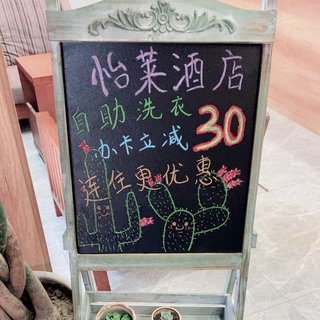 怡莱酒店
自助洗衣
办卡立减30
连住更优惠